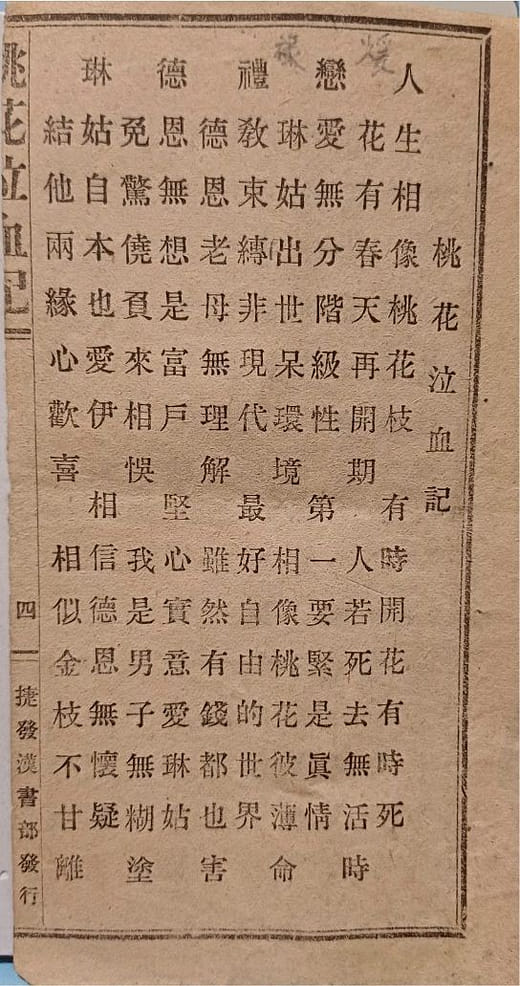 桃花泣血記
人生相像桃花枝 有時開花有時死
花有春天再開期 人若死去無活時
戀愛無分階級性 第一要緊是眞情
琳姑出世呆環境 相像桃花彼薄命
禮敎束縛非現代 最好自由的世界
德恩老母無理解 雖然有錢都也害
德恩無想是富戶 堅心實意愛琳姑
免驚僥負來相悞 我是男子無糊塗
琳姑自本也愛伊 相信德恩無懷疑
結他兩緣心歡喜 相似金枝不甘離
桃花泣血記
四
捷發漢書部發行